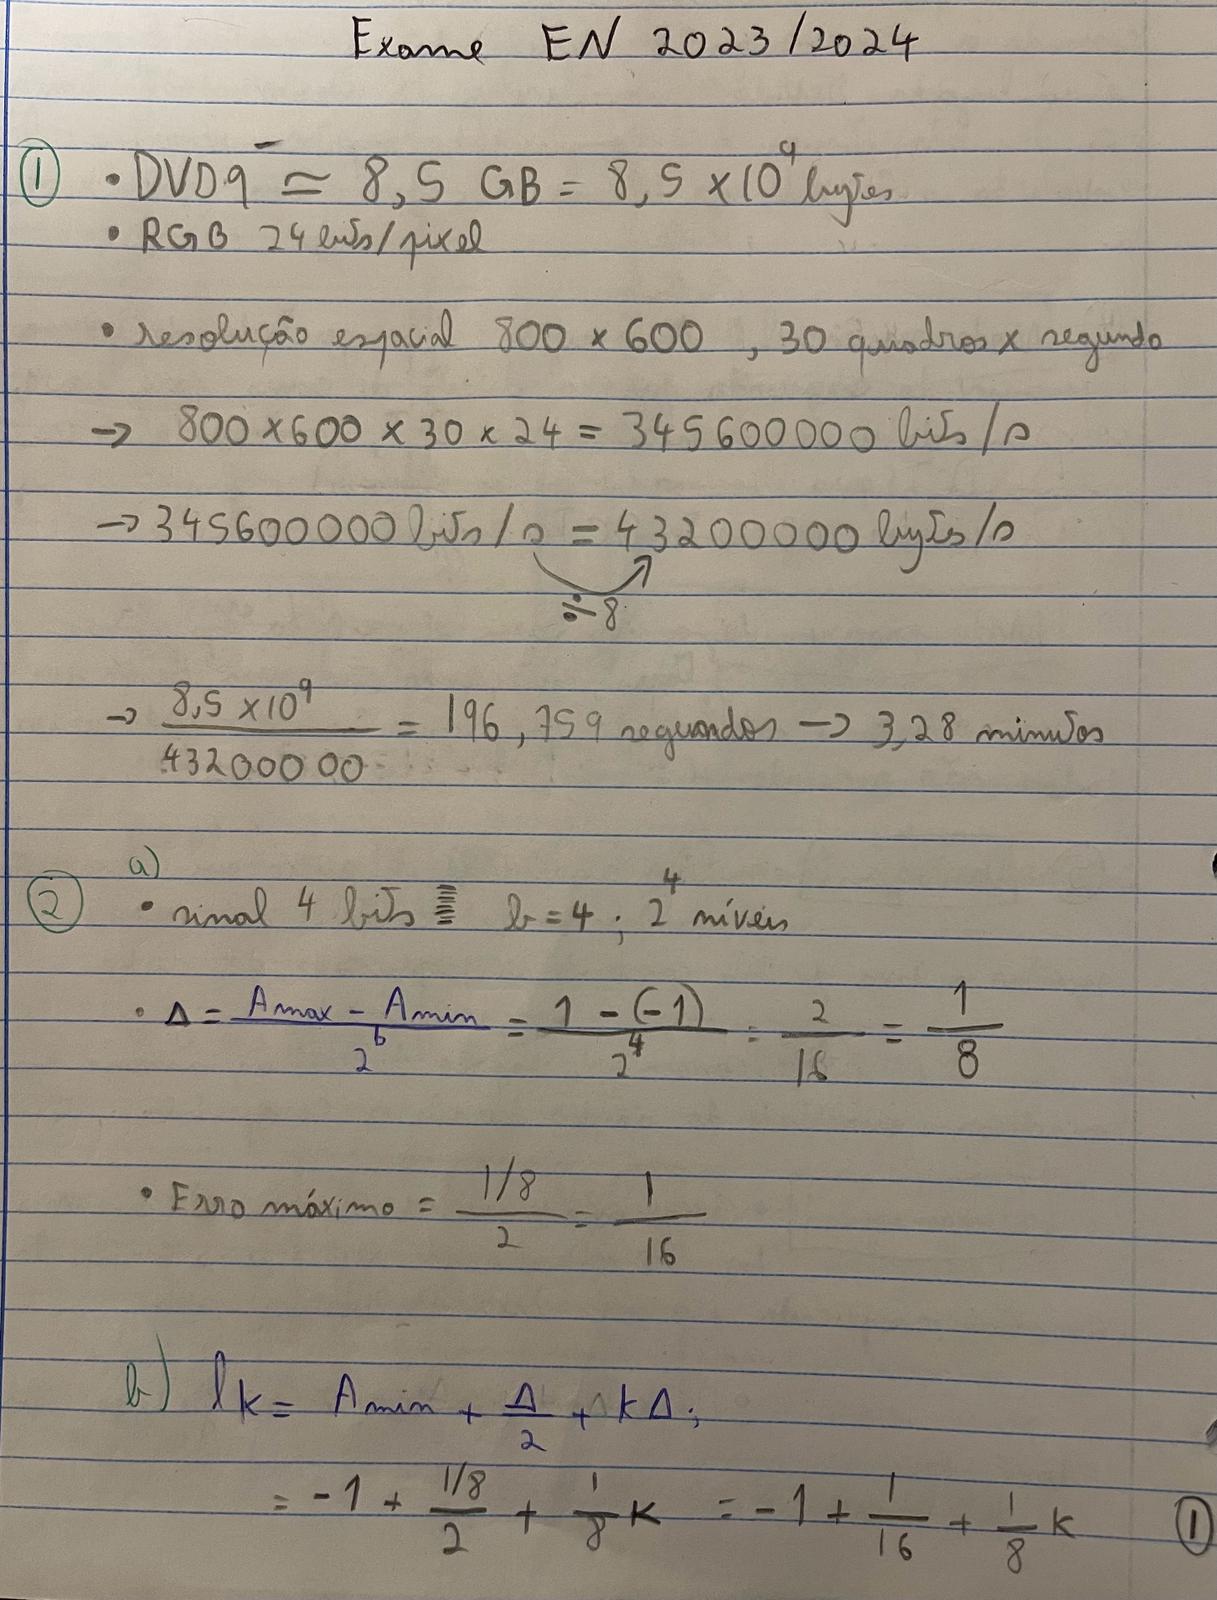 Exame EN 2023/2024
① • DVD9 ≃ 8,5 GB = 8,5 × 10⁹ bytes
• RGB 24 bits/pixel
• resolução espacial 800 × 600 , 30 quadros × segundo
→ 800 × 600 × 30 × 24 = 345600000 bits/s
→ 345600000 bits/s = 43200000 bytes/s
÷8
→ 8,5 × 10⁹ / 43200000 = 196,759 segundos → 3,28 minutos
a)
② • sinal 4 bits b = 4 ; 2⁴ níveis
• Δ = (Amax - Amin) / 2ᵇ = (1 - (-1)) / 2⁴ = 2/16 = 1/8
• Erro máximo = (1/8) / 2 = 1/16
b) lk = Amin + Δ/2 + kΔ;
= -1 + (1/8)/2 + 1/8 k = -1 + 1/16 + 1/8 k ①